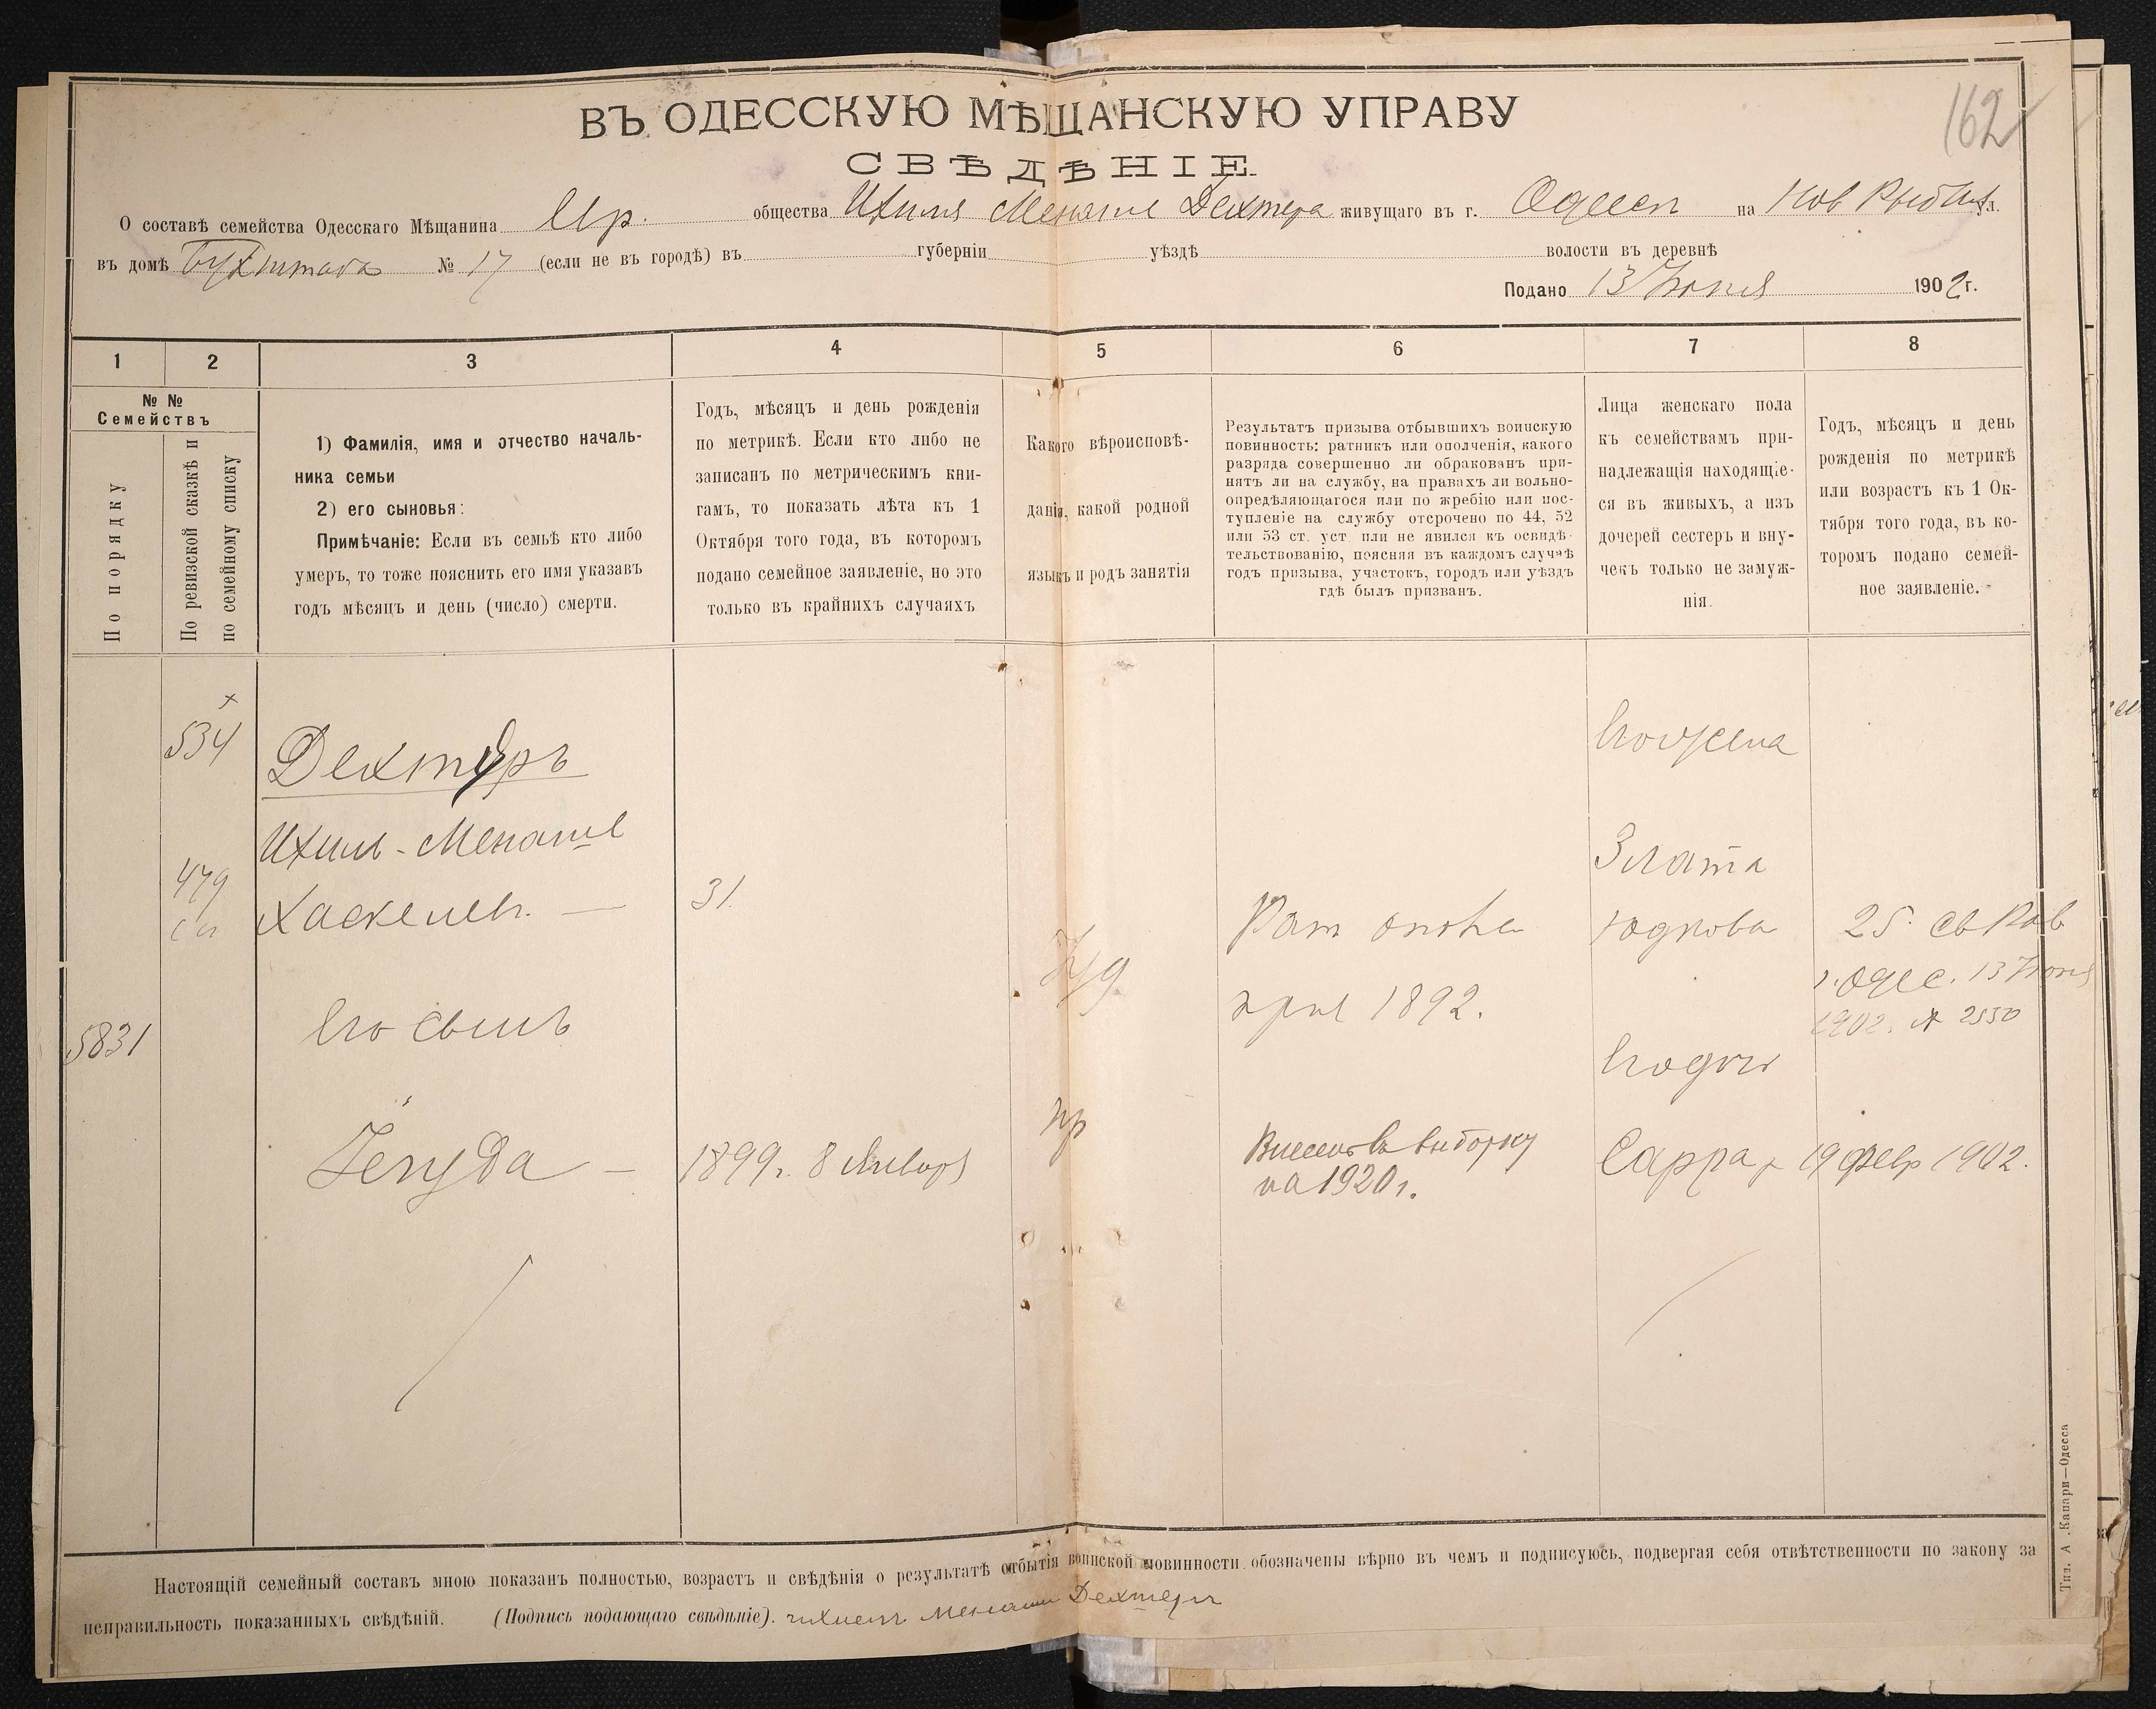 162
ВЪ ОДЕССКУЮ МѢЩАНСКУЮ УПРАВУ
СВѢДѢНІЕ.
О составѣ семейства Одесскаго Мѣщанина Евр. общества Ихиля Менаше Дехтера живущаго въ г. Одессѣ на Нов Рыбн ул.
въ домѣ Бухштаба № 17 (если не въ городѣ) въ губерніи уѣздѣ волости въ деревнѣ
Подано 13 Іюня 1902 г.
1 2 3 4 5 6 7 8
№ №
Семействъ
По порядку
По ревизской сказкѣ и
по семейному списку
1) Фамилія, имя и отчество началь-
ника семьи
2) его сыновья:
Примѣчаніе: Если въ семьѣ кто либо
умеръ, то тоже пояснить его имя указавъ
годъ мѣсяцъ и день (число) смерти.
Годъ, мѣсяцъ и день рожденія
по метрикѣ. Если кто либо не
записанъ по метрическимъ кни-
гамъ, то показать лѣта къ 1
Октября того года, въ которомъ
подано семейное заявленіе, но это
только въ крайнихъ случаяхъ
Какого вѣроисповѣ-
данія, какой родной
языкъ и родъ занятія
Результатъ призыва отбывшихъ воинскую
повинность: ратникъ или ополченія, какого
разряда совершенно ли обракованъ при-
нятъ ли на службу, на правахъ ли вольно-
опредѣляющагося или по жребію или пос-
тупленіе на службу отсрочено по 44, 52
или 53 ст. уст. или не явился къ освидѣ-
тельствованію, поясняя въ каждомъ случаѣ
годъ призыва, участокъ, городъ или уѣздъ
гдѣ былъ призванъ.
Лица женскаго пола
къ семействамъ при-
надлежащія находящіе-
ся въ живыхъ, а изъ
дочерей сестеръ и вну-
чекъ только не замуж-
нія.
Годъ, мѣсяцъ и день
рожденія по метрикѣ
или возрастъ къ 1 Ок-
тября того года, въ ко-
торомъ подано семей-
ное заявленіе.
534 Дехтеръ Его жена
Ихиль-Менаше Злата
479 Хаскелев. — 31. Рат опол Юдкова 25. св Рав
Іуд г. Одес. 13 Іюня
приз 1892. 1902. № 2550
5831 Его сынъ Его дочь
Іегуда — 1899 г. 8 Января Внесенъ въ выборку Сарра р 19 февр 1902.
на 1920 г.
Настоящій семейный составъ мною показанъ полностью, возрастъ и свѣдѣнія о результатѣ отбытія воинской повинности обозначены вѣрно въ чемъ и подписуюсь, подвергая себя отвѣтственности по закону за
неправильность показанныхъ свѣдѣній. (Подпись подающаго свѣдѣніе). ихиель Менаши Дехтеръ
Тип. А. Капари—Одесса